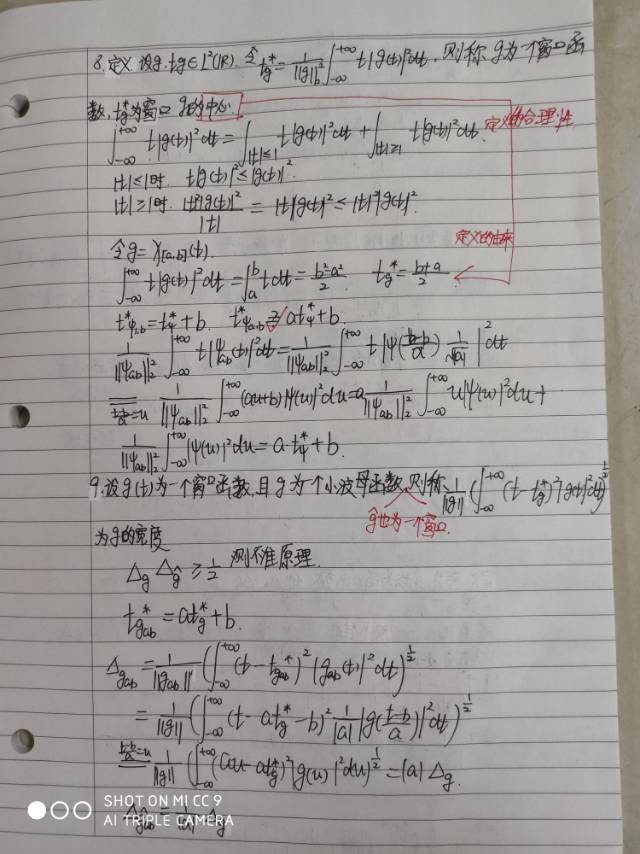 8.定义 设g.tg∈L²(IR). 令 t_g^*=\frac{1}{||g||_2^2}∫_{-∞}^{+∞} t|g(t)|²dt, 则称g为一个窗口函
数, t_g^*为窗口g的中心.
∫_{-∞}^{+∞} t|g(t)|²dt=∫_{|t|≤1} t|g(t)|²dt+∫_{|t|≥1} t|g(t)|²dt. 定义的合理性
|t|≤1时. t|g(t)|²≤|g(t)|²
|t|≥1时. \frac{|t|²|g(t)|²}{|t|}=|t||g(t)|²≤|t|²|g(t)|².
定义的由来
令g=χ_{[a,b]}(t).
∫_{-∞}^{+∞} t|g(t)|²dt=∫_a^b tdt=\frac{b²-a²}{2}. t_g^*=\frac{b+a}{2}
t^*_{ψ_{1,b}}=t^*_ψ+b. t^*_{ψ_{a,b}}=at^*_ψ+b.
\frac{1}{||ψ_{ab}||_2^2}∫_{-∞}^{+∞} t|ψ_{ab}(t)|²dt=\frac{1}{||ψ_{ab}||_2^2}∫_{-∞}^{+∞} t|ψ(\frac{t-b}{a})\frac{1}{\sqrt{|a|}}|²dt
\frac{t-b}{a}=u \frac{1}{||ψ_{ab}||_2^2}∫_{-∞}^{+∞}(au+b)|ψ(u)|²du=a\frac{1}{||ψ_{ab}||_2^2}∫_{-∞}^{+∞} u|ψ(u)|²du+
\frac{1}{||ψ_{ab}||_2^2}∫_{-∞}^{+∞}|ψ(u)|²du=a·t^*_ψ+b.
9.设g(t)为一个窗口函数,且g为一个小波母函数,则称\frac{1}{||g||}(∫_{-∞}^{+∞}(t-t_g^*)²|g(t)|²dt)^{\frac{1}{2}}
ĝ也为一个窗口.
为g的宽度
Δ_gΔ_ĝ≥\frac{1}{2} 测不准原理.
t^*_{g_{ab}}=at_g^*+b.
Δ_{g_{ab}}=\frac{1}{||g_{ab}||}(∫_{-∞}^{+∞}(t-t^*_{g_{ab}})²|g_{ab}(t)|²dt)^{\frac{1}{2}}
=\frac{1}{||g||}(∫_{-∞}^{+∞}(t-at_g^*-b)²\frac{1}{|a|}|g(\frac{t-b}{a})|²dt)^{\frac{1}{2}}
\frac{t-b}{a}=u \frac{1}{||g||}(∫_{-∞}^{+∞}(au-at_g^*)²|g(u)|²du)^{\frac{1}{2}}=|a|Δ_g.
Δ_{ĝ_{ab}}=\frac{1}{|a|}Δ_ĝ
SHOT ON MI CC 9
AI TRIPLE CAMERA